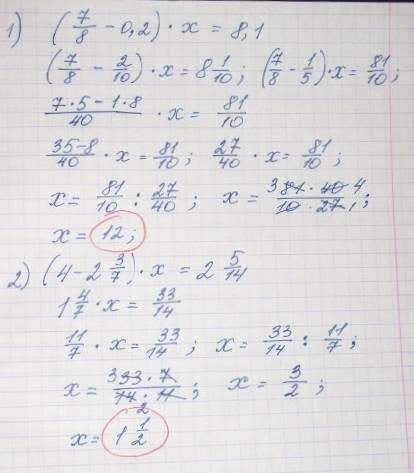 1) (7/8 - 0,2) · x = 8,1
(7/8 - 2/10) · x = 8 1/10; (7/8 - 1/5) · x = 81/10;
(7·5 - 1·8)/40 · x = 81/10
(35-8)/40 · x = 81/10; 27/40 · x = 81/10;
x = 81/10 : 27/40; x = 3 81 · 40 4 / 10 · 27 1;
x = 12;
2) (4 - 2 3/7) · x = 2 5/14
1 4/7 · x = 33/14
11/7 · x = 33/14; x = 33/14 : 11/7;
x = 3 33 · 7 / 14 · 11 2; x = 3/2;
x = 1 1/2